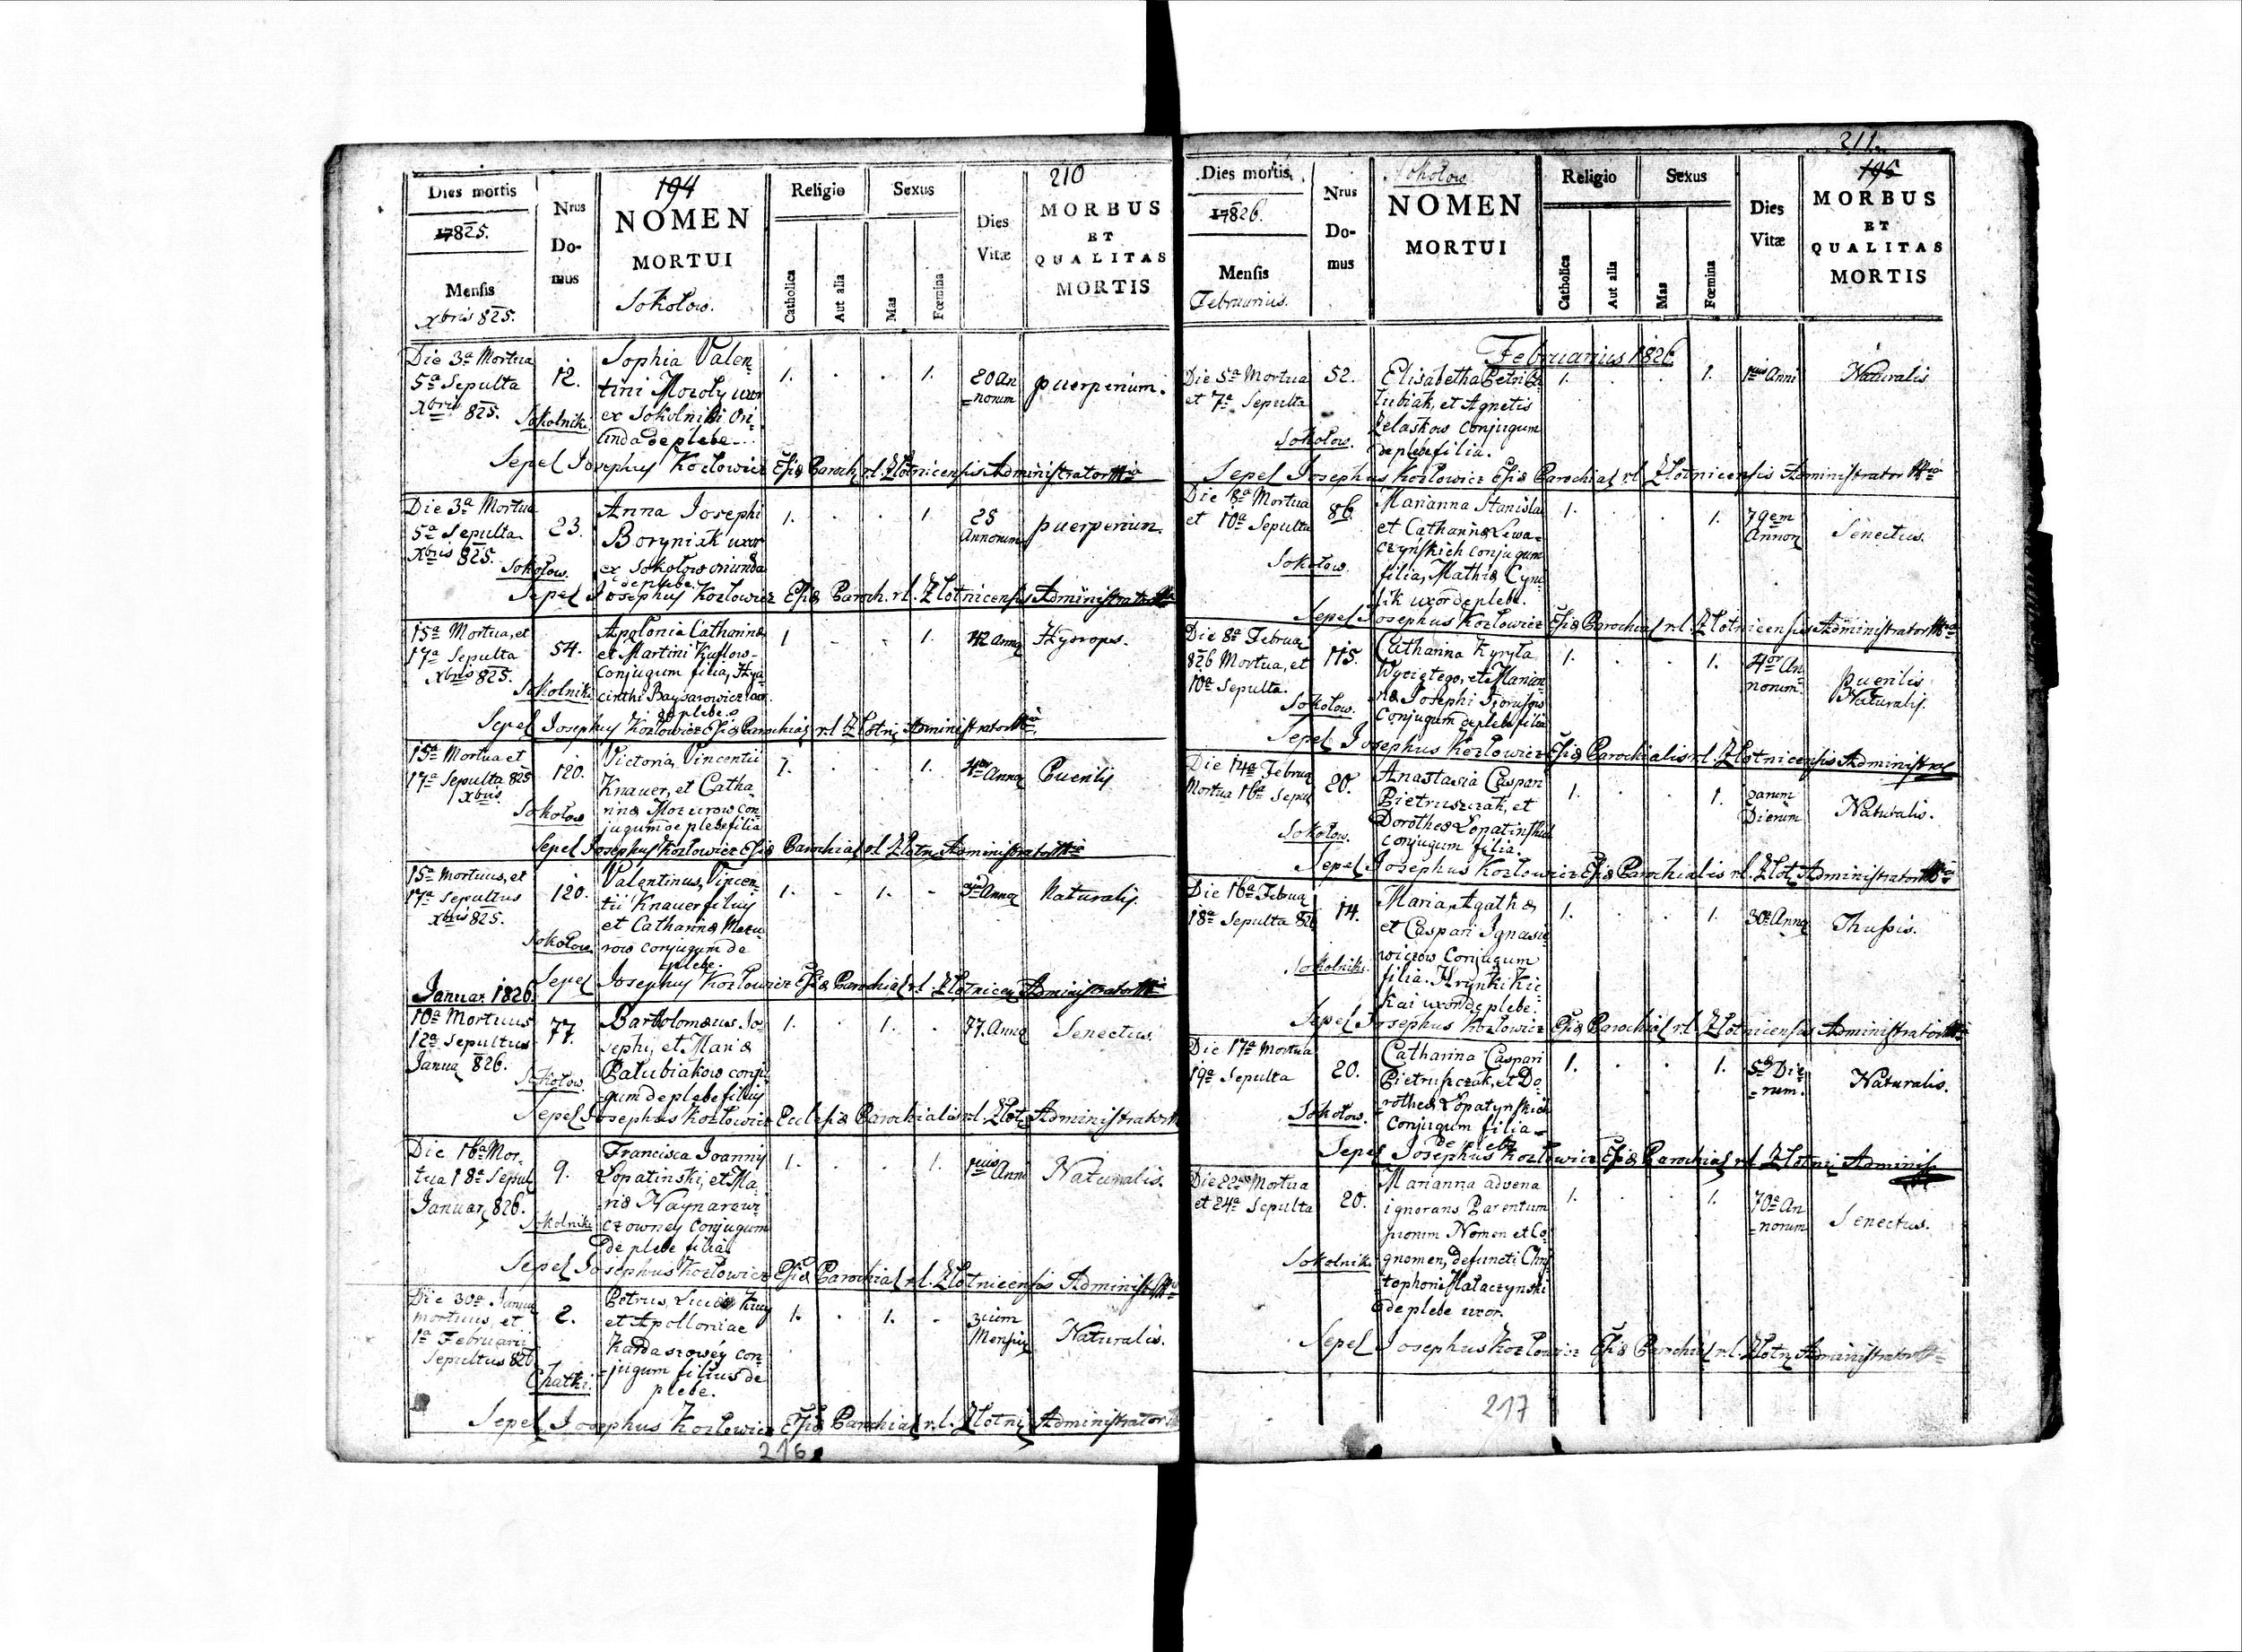 210
Dies mortis
17825.
Mensis
Xbris 825.
Nrus
Do-
mus
194
NOMEN
MORTUI
Sokołow.
Religio
Catholica
Aut alia
Sexus
Mas
Fœmina
Dies
Vitæ
MORBUS
ET
QUALITAS
MORTIS
Die 3a Mortua
5a Sepulta
Xbris 825.
Sokolniki
12.
Sophia Valen-
tini Mozoly uxor
ex Sokolniki Ori-
unda de plebe
1. . . 1.
20 an
-norum
puerperium.
Sepel Josephus Kozlowicz Esiæ Paroch. r.l. Zlotnicensis Administrator
Die 3a Mortua
5a Sepulta
Xbris 825.
Sokołow.
23.
Anna Josephi
Boryniak uxor
ex Sokołow oriunda
de plebe.
1. . . 1.
25
Annorum
puerperium.
Sepel Josephus Kozlowicz Esiæ Paroch. r.l. Zlotnicensis Administrator
15a Mortua, et
17a Sepulta
Xbris 825.
Sokolniki
54.
Apolonia Catharinæ
et Martini
Conjugum filia, Hya-
cinthi
de plebe.
1 . . 1.
42 Anno
Hydrops.
Sepel Josephus Kozlowicz Esiæ Parochial r.l Zlotni Administrator
15a Mortua et
17a Sepulta 825
Xbris.
Sokołow
120.
Victoria, Vincentii
Knauer, et Catha-
rinæ Mazurow con-
jugum de plebe filia
1. . . 1.
4or Anno
Puerilis
Sepel Josephus Kozlowicz Esiæ Parochial r.l Zlotni Administrator
15a Mortuus, et
17a Sepultus
Xbris 825.
Sokołow.
120.
Valentinus, Vincen-
tii Knauer filius
et Catharinæ Mazu-
row conjugum de
plebe.
1. . 1. .
Anno
Naturalis.
Sepel Josephus Kozlowicz Esiæ Parochial r.l. Zlotnicen Administrator
Januar. 1826.
10a Mortuus
12a Sepultus
Janua 826.
Sokołow.
77.
Bartolomæus Jo-
sephi, et Mariæ
Patubiakow conju-
gum de plebe filius
1. . 1. .
77. Anno
Senectus.
Sepel Josephus Kozlowicz Eclesiæ Parochialis r.l. Zlot Administrator
Die 16a Mor-
tua 18a Sepul
Januar 826.
Sokolniki
9.
Francisca Joannis
Łopatinski, et Ma-
riæ
czowney Conjugum
de plebe filia
1. . . 1.
1nius Anni
Naturalis.
Sepel Josephus Kozlowicz Esiæ Parochial r.l. Zlotnicensis Administ
Die 30a Janua
mortuus, et
1a Februarii
Sepultus 826
Chatki.
2.
Petrus, Lucæ
et Apolloniae
Kardaszowéy con-
jugum filius de
plebe.
1. . 1. .
3ium
Mensium
Naturalis.
Sepel Josephus Kozlowicz Esiæ Parochial r.l. Zlotni Administrator
216.
211.
Dies mortis
17826.
Mensis
Februarius.
Nrus
Do-
mus
Sokołow
NOMEN
MORTUI
Religio
Catholica
Aut alia
Sexus
Mas
Fœmina
Dies
Vitæ
195
MORBUS
ET
QUALITAS
MORTIS
Februarius 1826.
Die 5a Mortua
et 7a Sepulta
Sokołow.
52.
Elisabetha Petri
lubiak, et Agnetis
Żelaskow conjugum
de plebe filia.
1. . . 1.
1nius Anni
Naturalis
Sepel Josephus Kozlowicz Esiæ Parochial r.l Zlotnicensis Administrator
Die 8a Mortua
et 10a Sepulta
Sokołow.
86.
Marianna Stanislai
et Catharinæ Lewa-
czynskich conjugum
filia, Mathiæ Cym-
sik uxor de plebe.
1. . . 1.
79em
Annor
Senectus.
Sepel Josephus Kozlowicz Esiæ Parochial r.l. Zlotnicensis Administrator
Die 8a Februa
826 Mortua, et
10a Sepulta.
Sokołow.
115.
Catharina Kyryła
et Marian-
næ Josephi
Conjugum de plebe filia
1. . . 1.
4or An-
norum.
puerilis
Naturalis.
Sepel Josephus Kozlowicz Esiæ Parochialis r.l. Zlotnicensis Administrat
Die 14a Februa
Mortua 16a Sepul
Sokołow.
20.
Anastasia Caspari
Pietruszczak, et
Dorotheæ Łopatinskich
conjugum filia.
1. . . 1.
Dierum
Naturalis.
Sepel Josephus Kozlowicz Esiæ Parochialis r.l. Zlot Administrator
Die 16a Februa
18a Sepulta 826
Sokolniki.
14.
Maria, Agathæ
et Caspari Ignasie-
wiczow Conjugum
filia. Hrynki Kic-
kai uxor de plebe.
1. . . 1.
30a Anno
Thussis.
Sepel Josephus Kozlowicz Esiæ Parochial r.l. Zlotnicensis Administrator
Die 17a Mortua
19a Sepulta
Sokołow.
20.
Catharina Caspari
Pietruszczak, et Do-
rotheæ Łopatynskich
conjugum filia
de plebe
1. . . 1.
5a Die-
-rum.
Naturalis.
Sepel Josephus Kozlowicz Esiæ Parochial r.l Zlotni Adminis
Die 22a Mortua
et 24a Sepulta
Sokolniki
20.
Marianna advena
ignorans Parentum
suorum Nomen et Co-
gnomen, defuncti Chris
tophori Małaczynski
de plebe uxor.
1. . . 1.
70a An
-norum
Senectus.
Sepel Josephus Kozlowicz Esiæ Parochial r.l. Zlotni Administrator
217